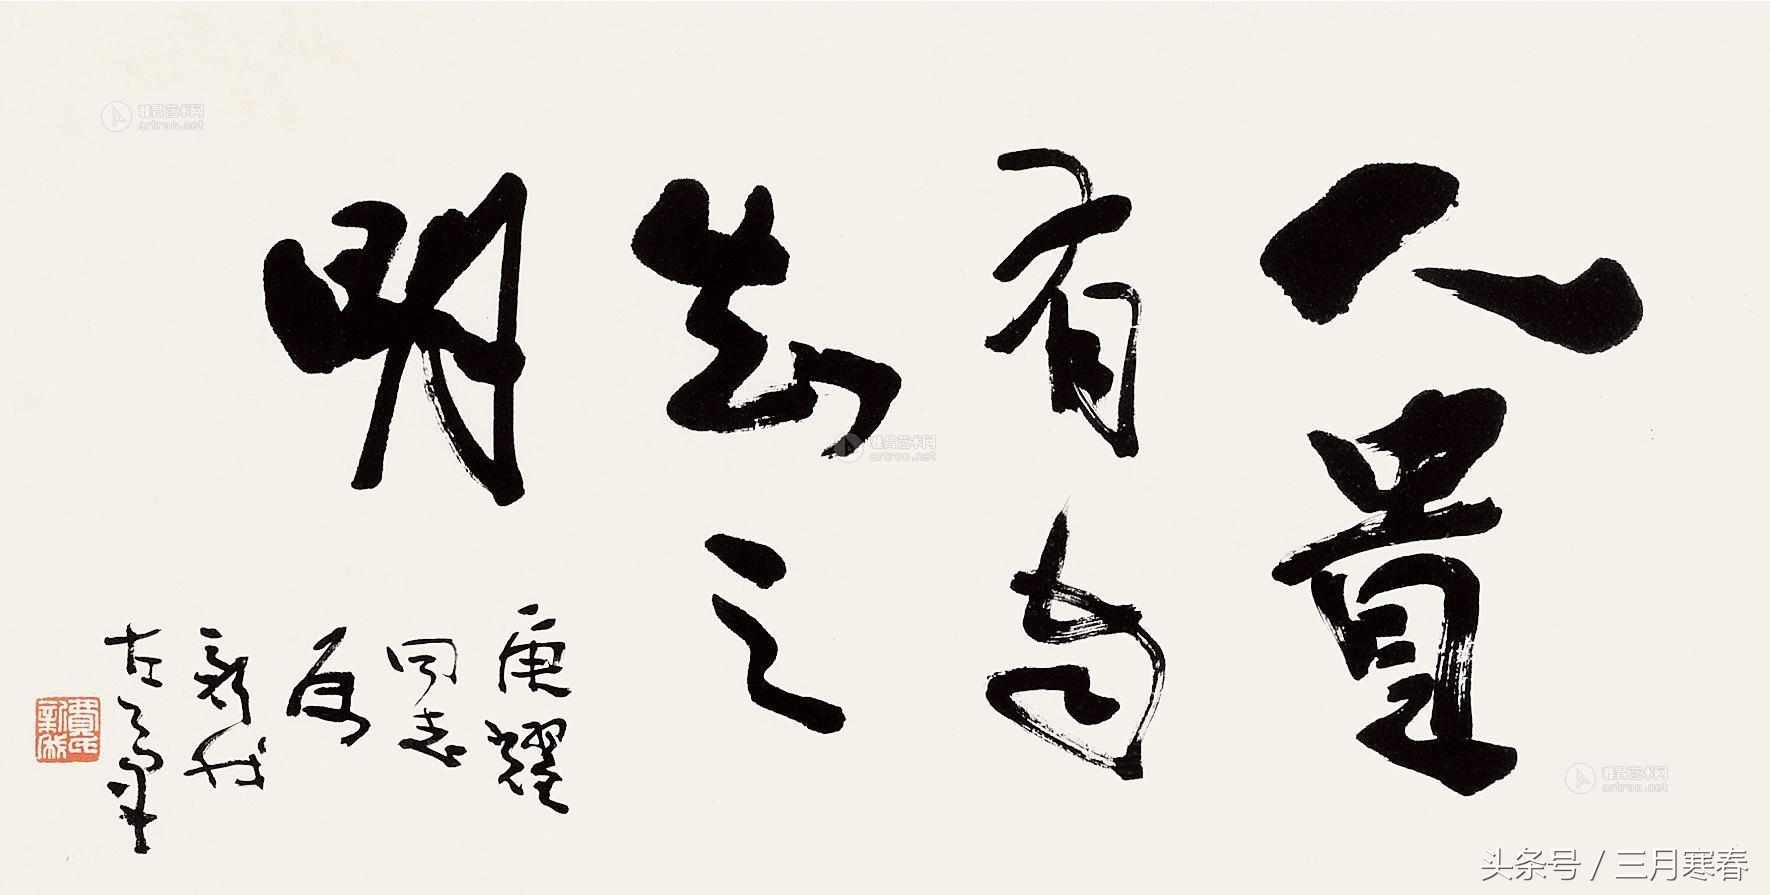 人貴
有自
知之
明
庚耀
同志
新我
左筆
費氏
新我
雅昌艺术网
artron.net
雅昌艺术网
artron.net
雅昌艺术网
artron.net
头条号 / 三月寒春